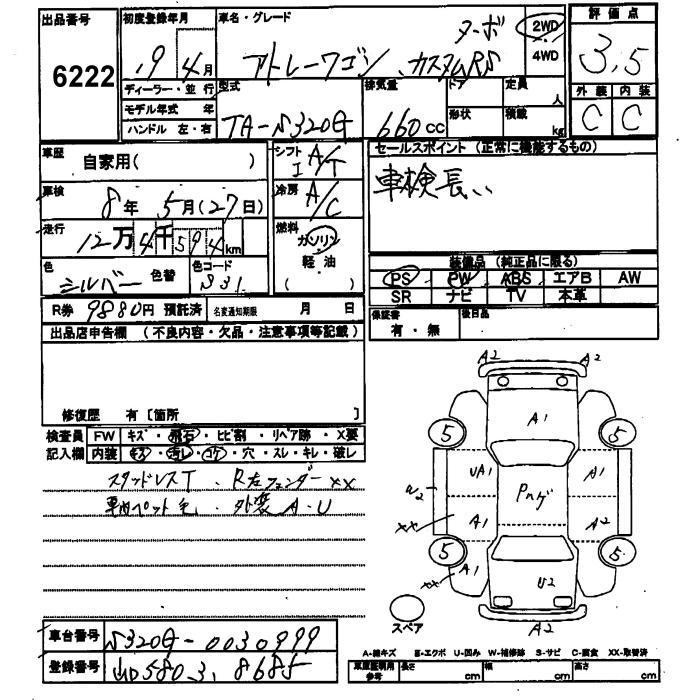 出品番号
6222
初度登録年月
19 年 4 月
ディーラー・並行
モデル年式 年
ハンドル 左・右
車名・グレード
アトレーワゴン カスタムRS ターボ
2WD
4WD
評価点
3,5
外装 内装
C C
型式
TA-S320G
排気量
660 cc
ドア
形状
定員
人
積載
kg
車歴
自家用( )
車検
8年 5月(27日)
走行
12万4千594km
色
シルバー 色替
色コード
S31
シフト
I A/T
冷房
A/C
燃料
ガソリン
軽・油
( )
セールスポイント (正常に機能するもの)
車検長い
装備品 (純正品に限る)
PS PW ABS エアB AW
SR ナビ TV 本革
保証書
有・無
後日品
R券 9880円 預託済
名変通知期限 月 日
出品店申告欄 (不良内容・欠品・注意事項等記載)
修復歴 有 [箇所 ]
検査員 FW キズ・飛石・ヒビ割・リペア跡・X要
記入欄 内装 キズ・汚レ・コゲ・穴・スレ・キレ・破レ
スタッドレスT、R左フェンダーXX
車内ペット毛、外装A・U
A2 A2
A1
5 5
UA1 A1
Pハゲ
W2
XX A1 A2
5 5
XX A1
U2
スペア
A2
A-線キズ E-エクボ U-凹み W-補修跡 S-サビ C-腐食 XX-取替済
車庫証明用参考 長さ cm 幅 cm 高さ cm
車台番号 S320G-0030999
登録番号 山口580 す 8685